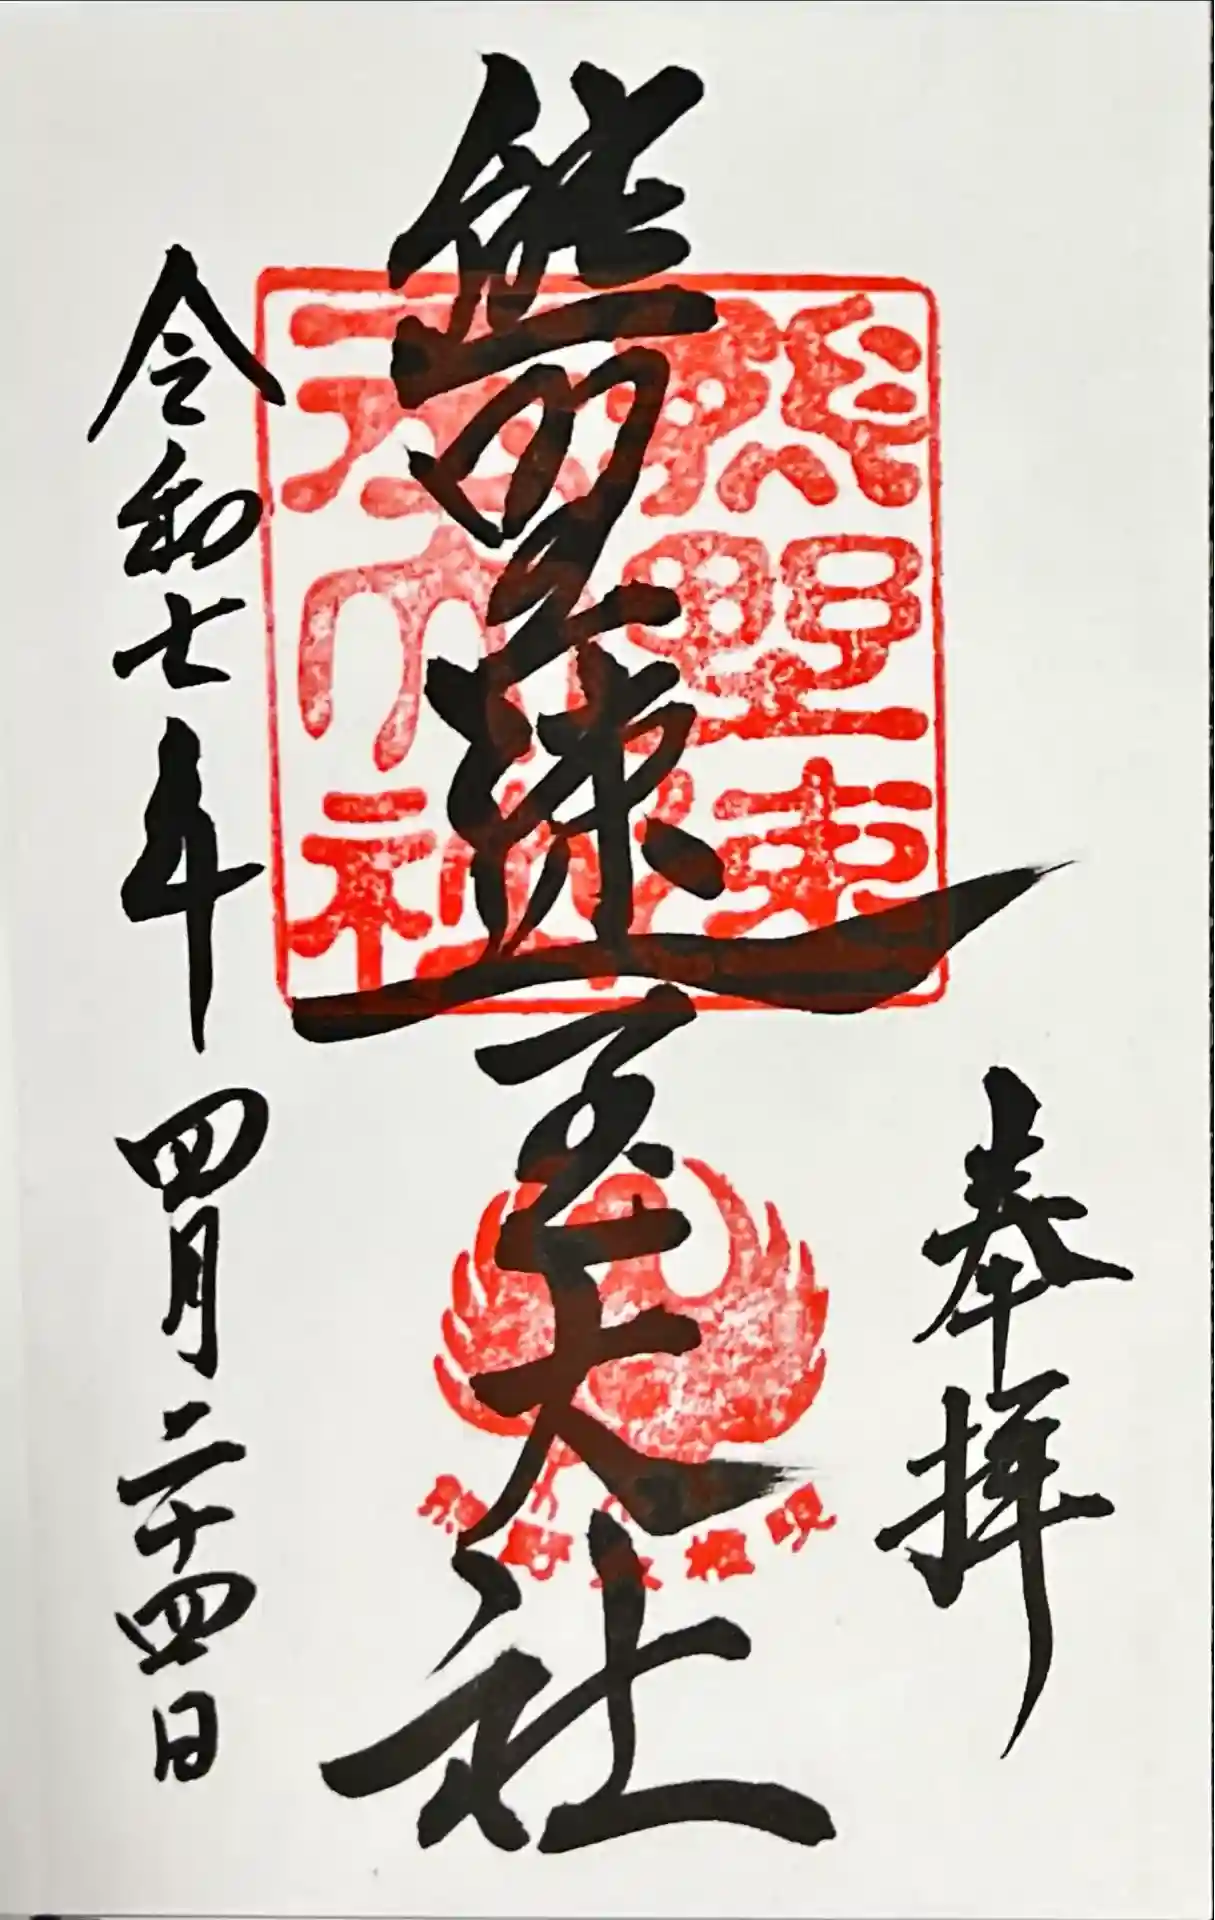 奉拝
熊野速玉大社
熊野速
玉大社
令和七年四月二十四日